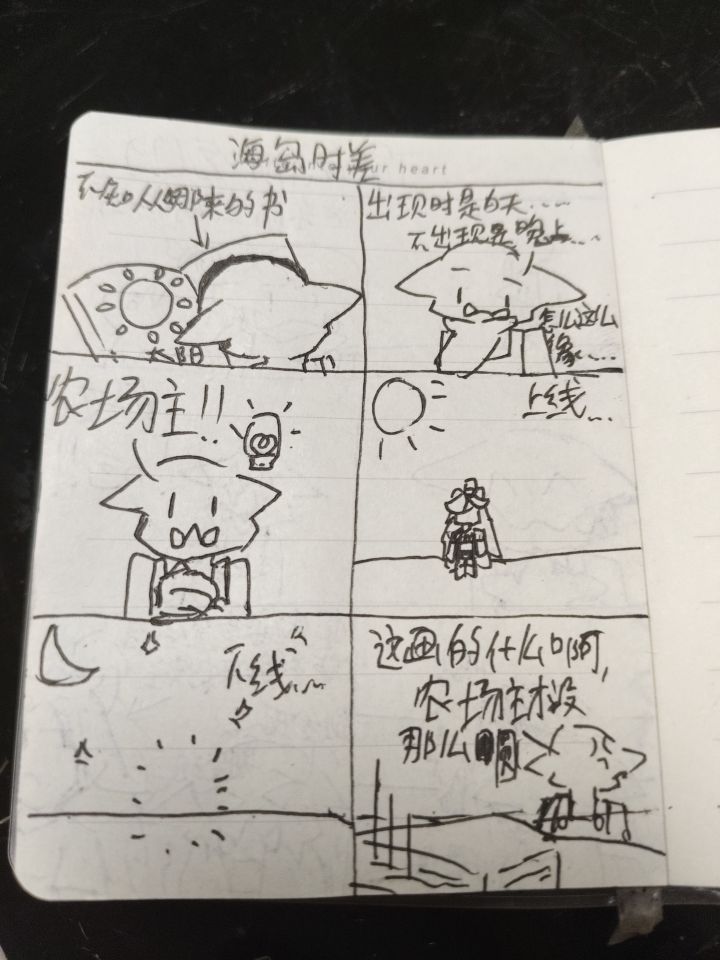 海岛时差
ur heart
不知从哪来的书
太阳
出现时是白天......
不出现是晚上...
怎么这么
像....
农场主!!
上线...
下线...
这画的什么啊,
农场主才没
那么圆